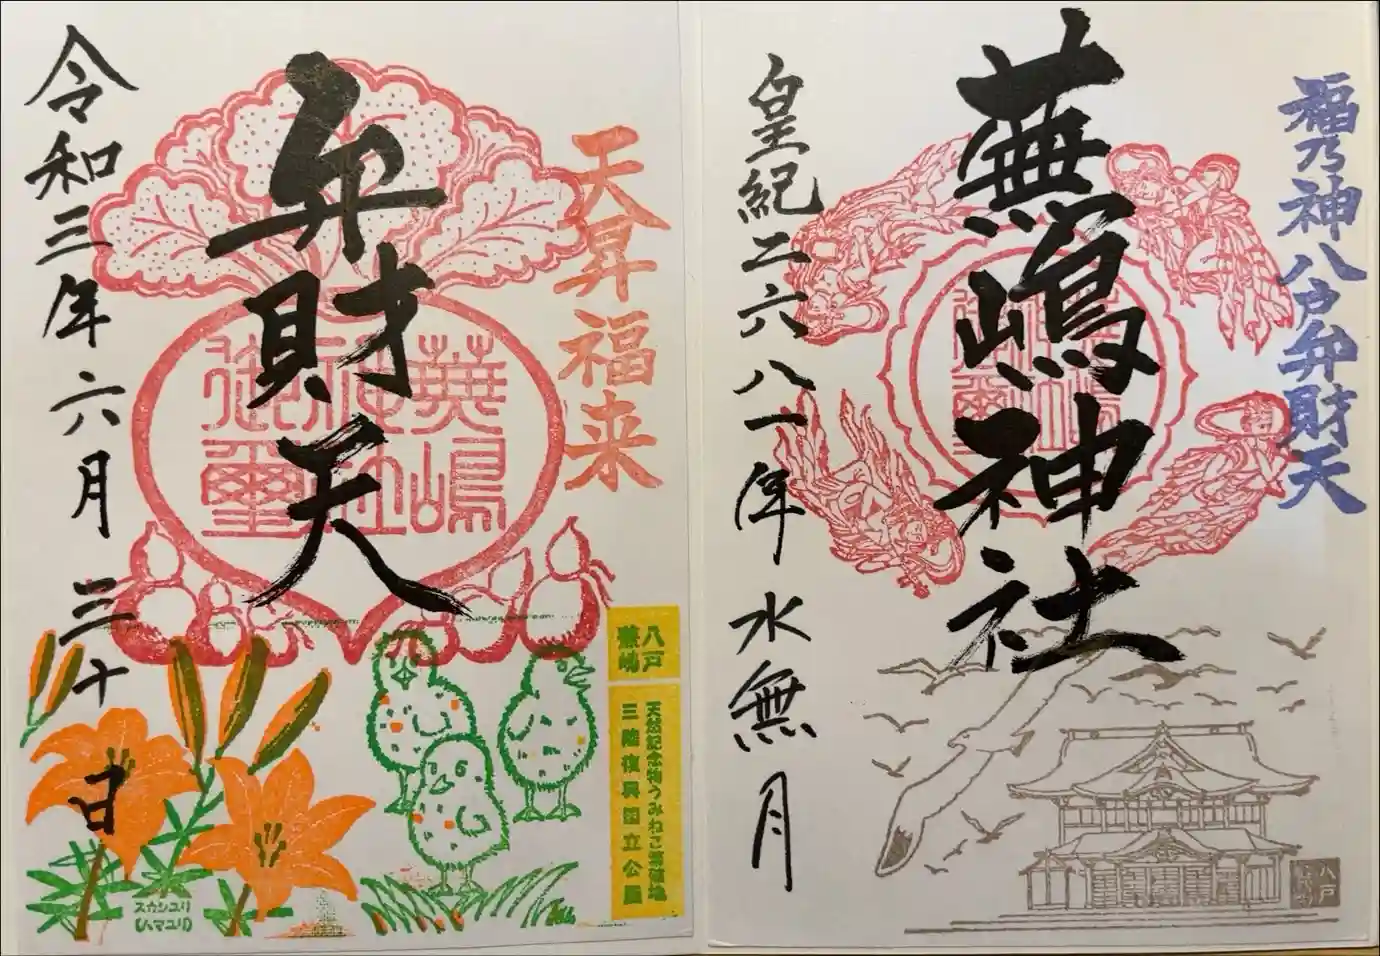 福乃神八戸弁財天
蕪嶋神社
皇紀二六八一年水無月
八戸
天昇福来
弁財天
蕪嶋
神社
御璽
令和三年六月三十日
八戸
蕪嶋
天然記念物うみねこ蕃殖地
三陸復興国立公園
スカシユリ
(ハマユリ)